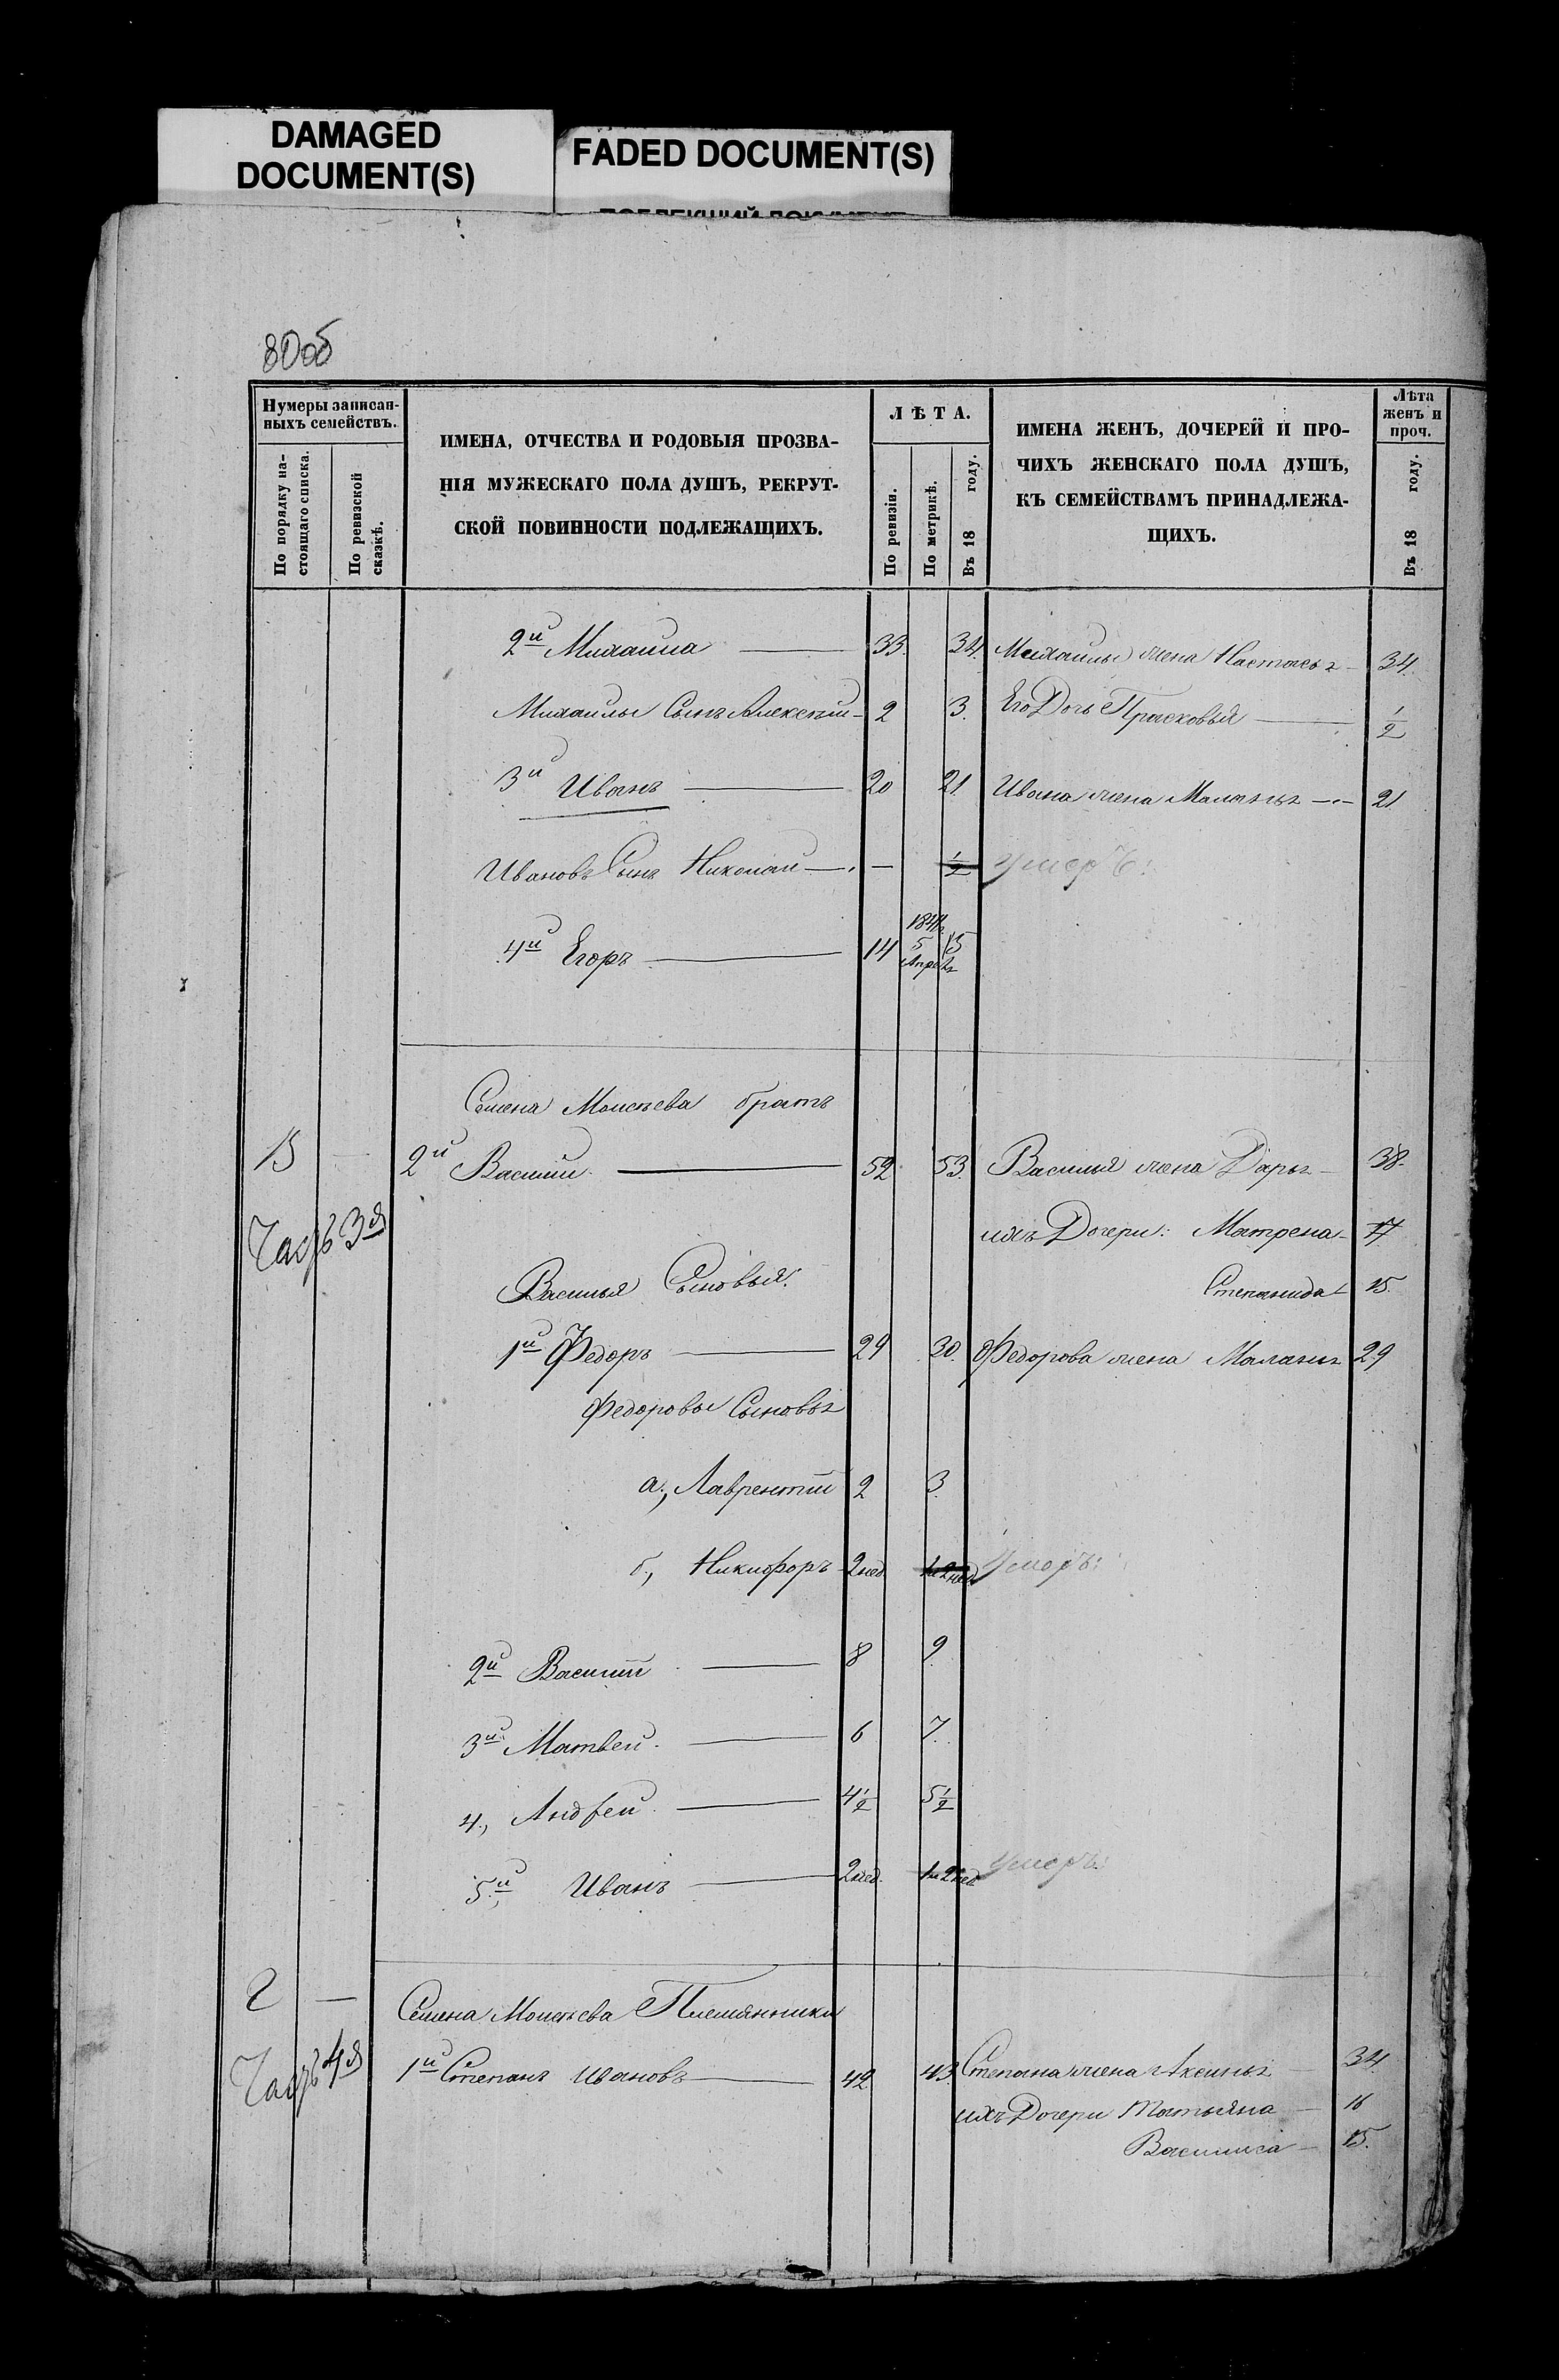 DAMAGED
DOCUMENT(S)
FADED DOCUMENT(S)
80об
Нумеры записан-
ныхъ семействъ.
По порядку на-
стоящаго списка.
По ревизской
сказкѣ.
ИМЕНА, ОТЧЕСТВА И РОДОВЫЯ ПРОЗВА-
НІЯ МУЖЕСКАГО ПОЛА ДУШЪ, РЕКРУТ-
СКОЙ ПОВИННОСТИ ПОДЛЕЖАЩИХЪ.
ЛѢТА.
По ревизіи.
По метрикѣ.
Въ 18 году.
ИМЕНА ЖЕНЪ, ДОЧЕРЕЙ И ПРО-
ЧИХЪ ЖЕНСКАГО ПОЛА ДУШЪ,
КЪ СЕМЕЙСТВАМЪ ПРИНАДЛЕЖА-
ЩИХЪ.
Лѣта
женъ и
проч.
Въ 18 году.
2й Михаила — 33. 34. Михаилы жена Настасья — 34.
Михаилы Сынъ Алексѣй — 2 3. Его Дочь Прасковья — 1/2
3й Иванъ — 20 21. Ивана жена Маланья — 21
Ивановъ Сынъ Николай — — 1/2 умеръ:
4й Егоръ — 14 1841г. 5 Апрѣля 15
Семена Моисѣева братъ
В — 2й Василій — 52 53. Василья жена Дарья — 38.
Часть 3я
ихъ Дочери: Матрена — 17
Василья Сыновья: Степанида — 15.
1й Федоръ — 29 30. Федорова жена Маланья 29
Федоровы Сыновья
а., Лаврентій 2 3.
б., Никифоръ 2нед. 1и2нед. Умеръ:
2й Василій — 8 9
3й Матвей. — 6 7.
4., Андрей. — 4 1/2 5 1/2
5й, Иванъ — 2нед. 1и2нед. Умеръ:
Г — Семена Моисѣева Племянники
Часть 4я 1й Степанъ Ивановъ — 42 43. Степана жена Аксинья — 34
ихъ Дочери Татьяна — 16
Василиса — 15.